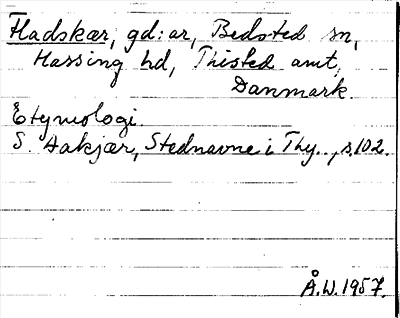 Fladskær, gd:ar, Bedsted sn,
Hassing hd, Thisted amt,
Danmark.
Etymologi.
S. Aakjær, Stednavne i Thy.., s.102.
Å.W.1957.